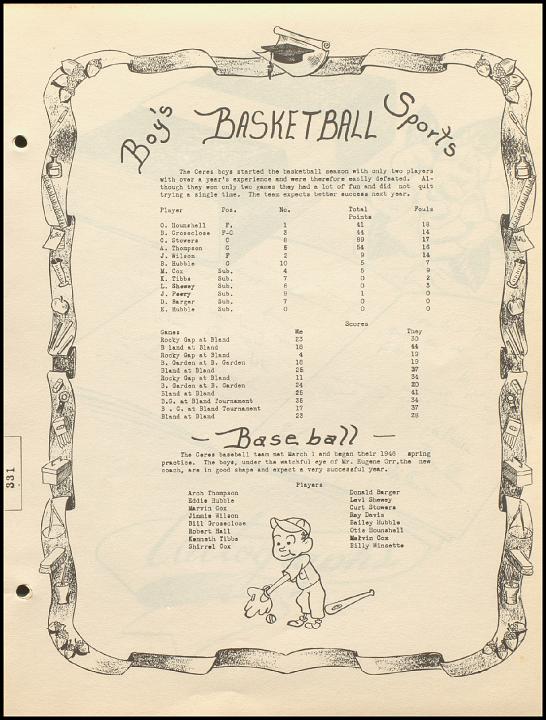 Boy's BASKETBALL Sports
The Ceres boys started the basketball season with only two players
with over a year's experience and were therefore easily defeated. Al-
though they won only two games they had a lot of fun and did not quit
trying a single time. The team expects better success next year.
Player Pos. No. Total Points Fouls
O. Hounshell F. 1 41 18
B. Groseclose F-G 3 44 14
C. Stowers C 8 89 17
A. Thompson G 5 54 16
J. Wilson F 2 9 14
B. Hubble G 10 5 7
M. Cox Sub. 4 5 9
K. Tibbs Sub. 7 0 2
L. Shewey Sub. 6 0 3
J. Peery Sub. 9 1 0
D. Barger Sub. 7 0 0
E. Hubble Sub. 0 0 0
Scores
Games We They
Rocky Gap at Bland 23 30
B land at Bland 18 44
Rocky Gap at Bland 4 19
B. Garden at B. Garden 18 19
Bland at Bland 25 37
Rocky Gap at Bland 11 34
B. Garden at B. Garden 24 20
Bland at Bland 25 41
B.G. at Bland Tournament 35 34
B . G. at Bland Tournament 17 37
Bland at Bland 23 28
- Baseball -
The Ceres baseball team met March 1 and began their 1948 spring
practice. The boys, under the watchful eye of Mr. Eugene Orr,the new
coach, are in good shape and expect a very successful year.
Players
Arch Thompson Donald Barger
Eddie Hubble Levi Shewey
Marvin Cox Curt Stowers
Jimmie Wilson Ray Davis
Bill Groseclose Bailey Hubble
Robert Hall Otis Hounshell
Kenneth Tibbs Melvin Cox
Shirrel Cox Billy Winesette
331